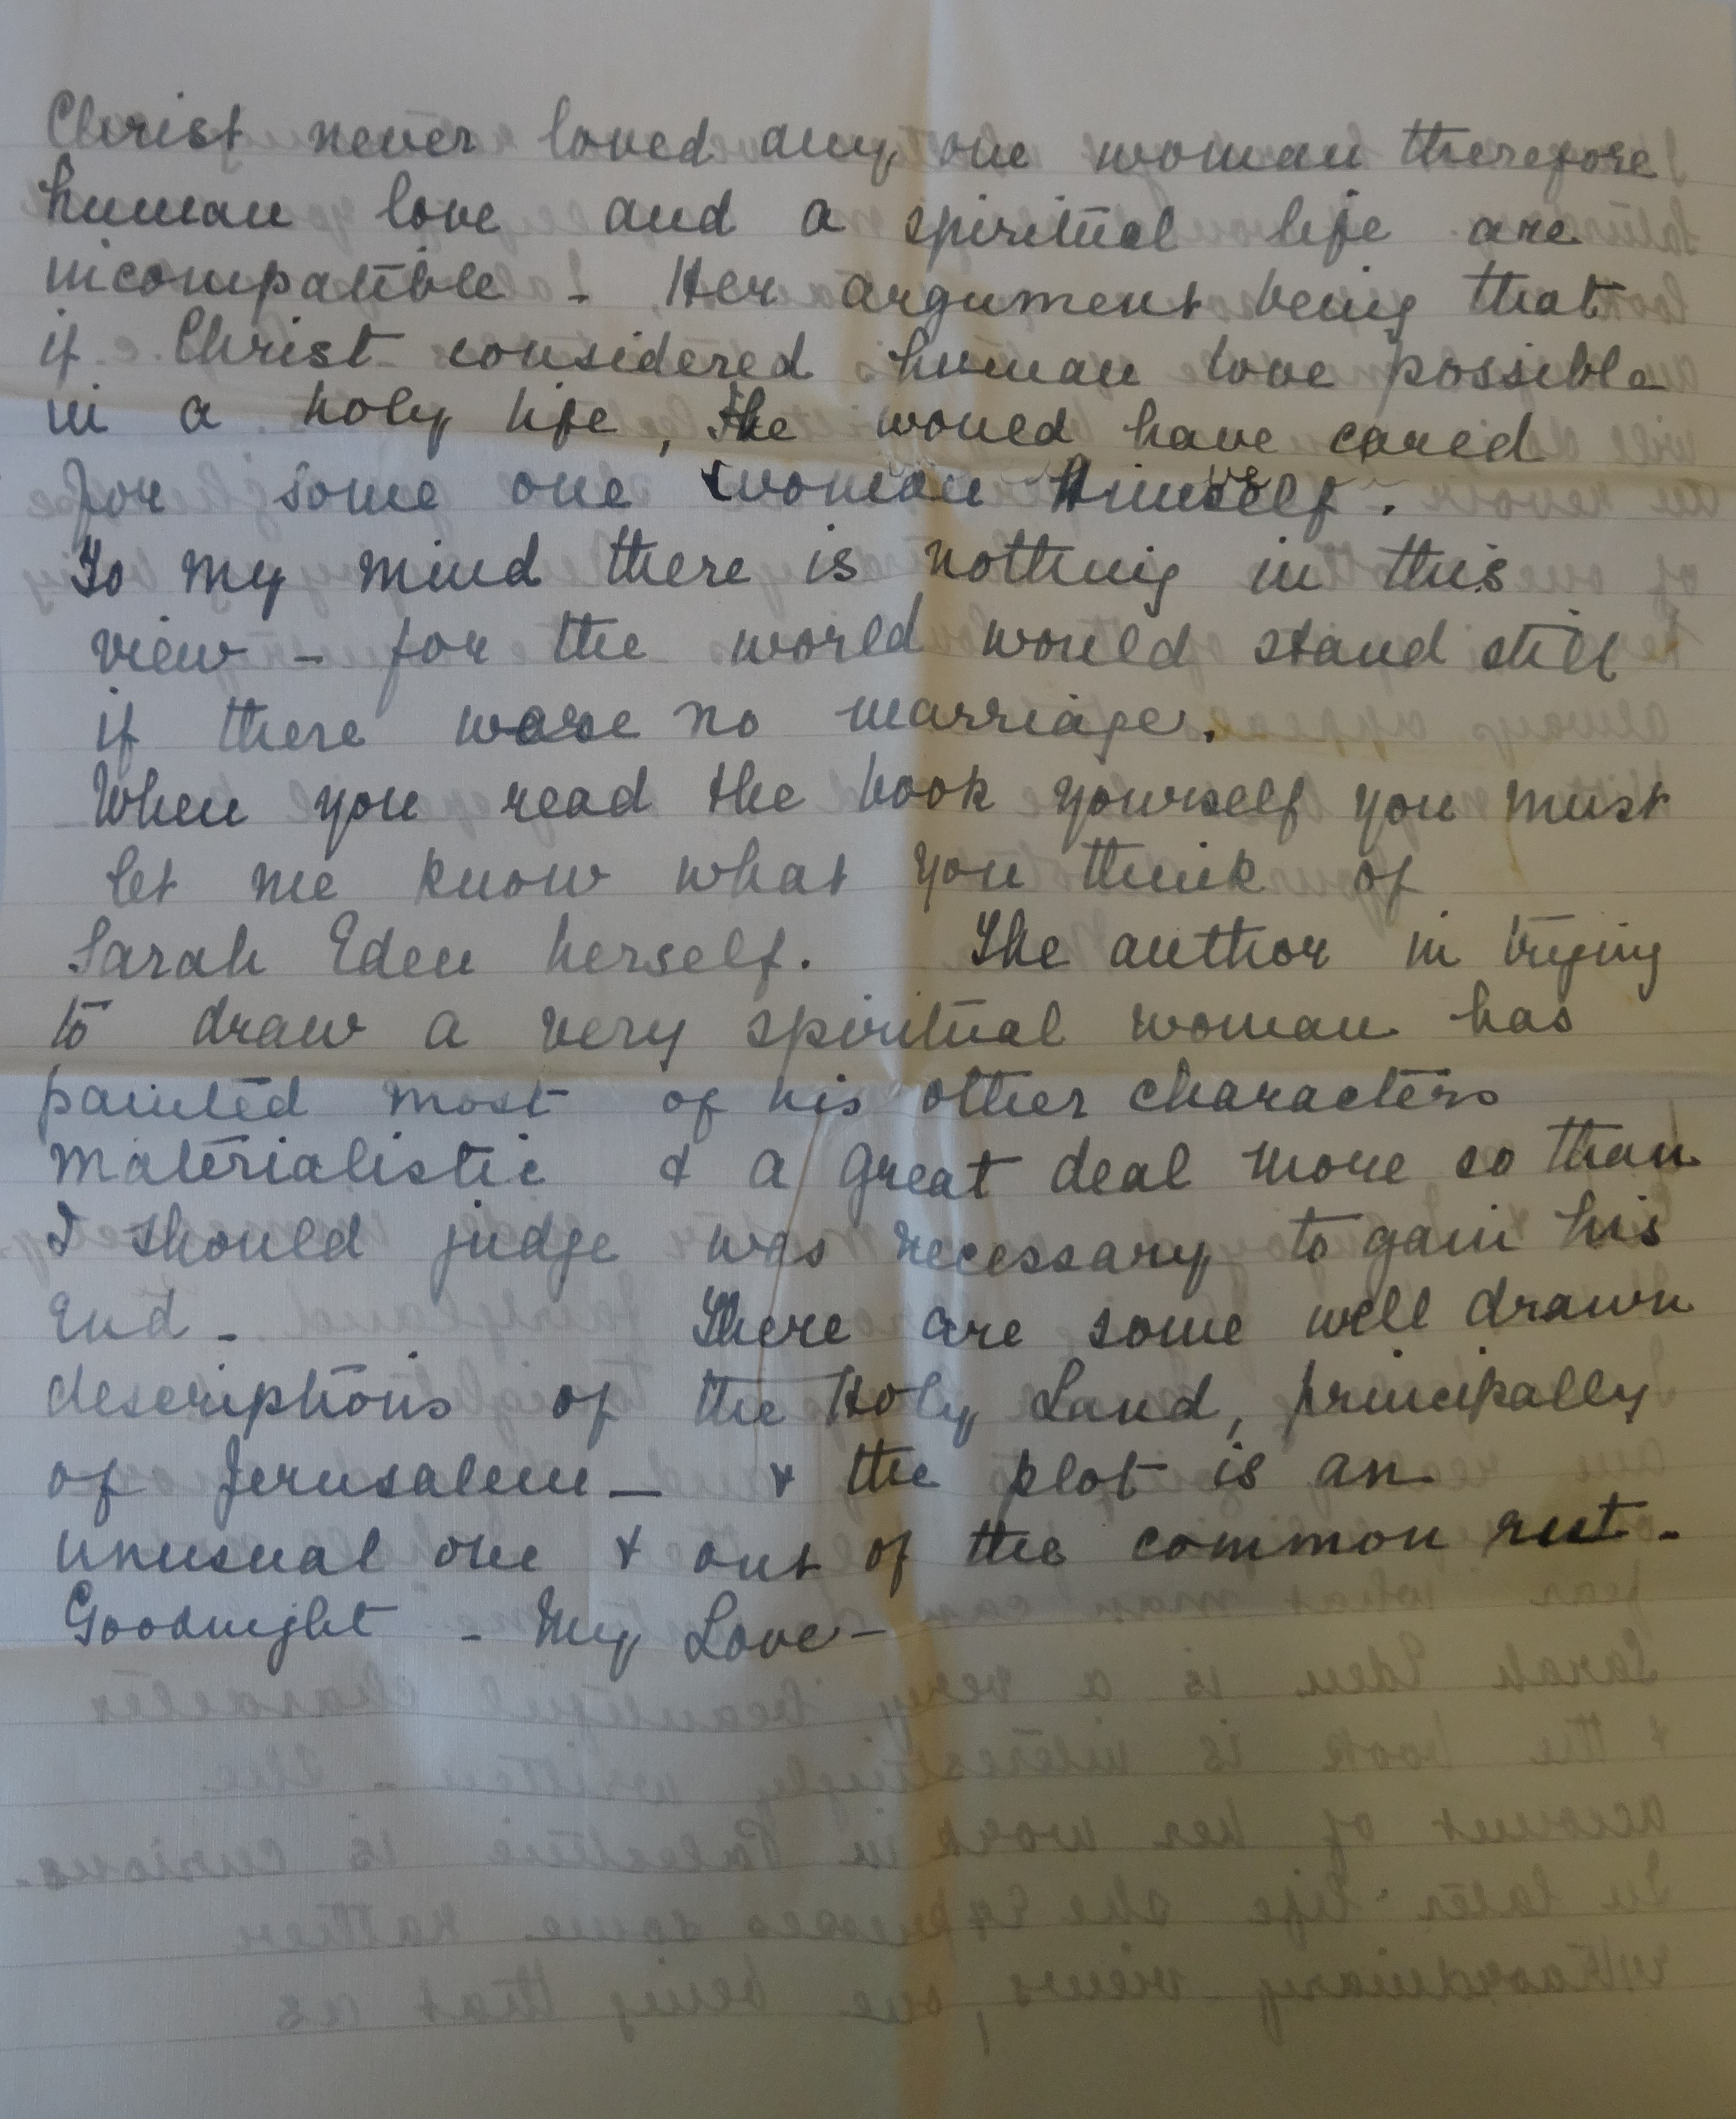 Christ never loved any one woman therefore
human love and a spiritual life are
incompatible - Her argument being that
if Christ considered human love possible
in a holy life, He would have cared
for some one woman Himself.
To my mind there is nothing in this
view - for the world would stand still
if there were no marriage.
When you read the book yourself you must
let me know what you think of
Sarah Eden herself. The author in trying
to draw a very spiritual woman has
painted most of his other characters
materialistic & a great deal more so than
I should judge was necessary to gain his
End - There are some well drawn
descriptions of the Holy Land, principally
of Jerusalem - & the plot is an
unusual one & out of the common rut -
Goodnight - My Love -